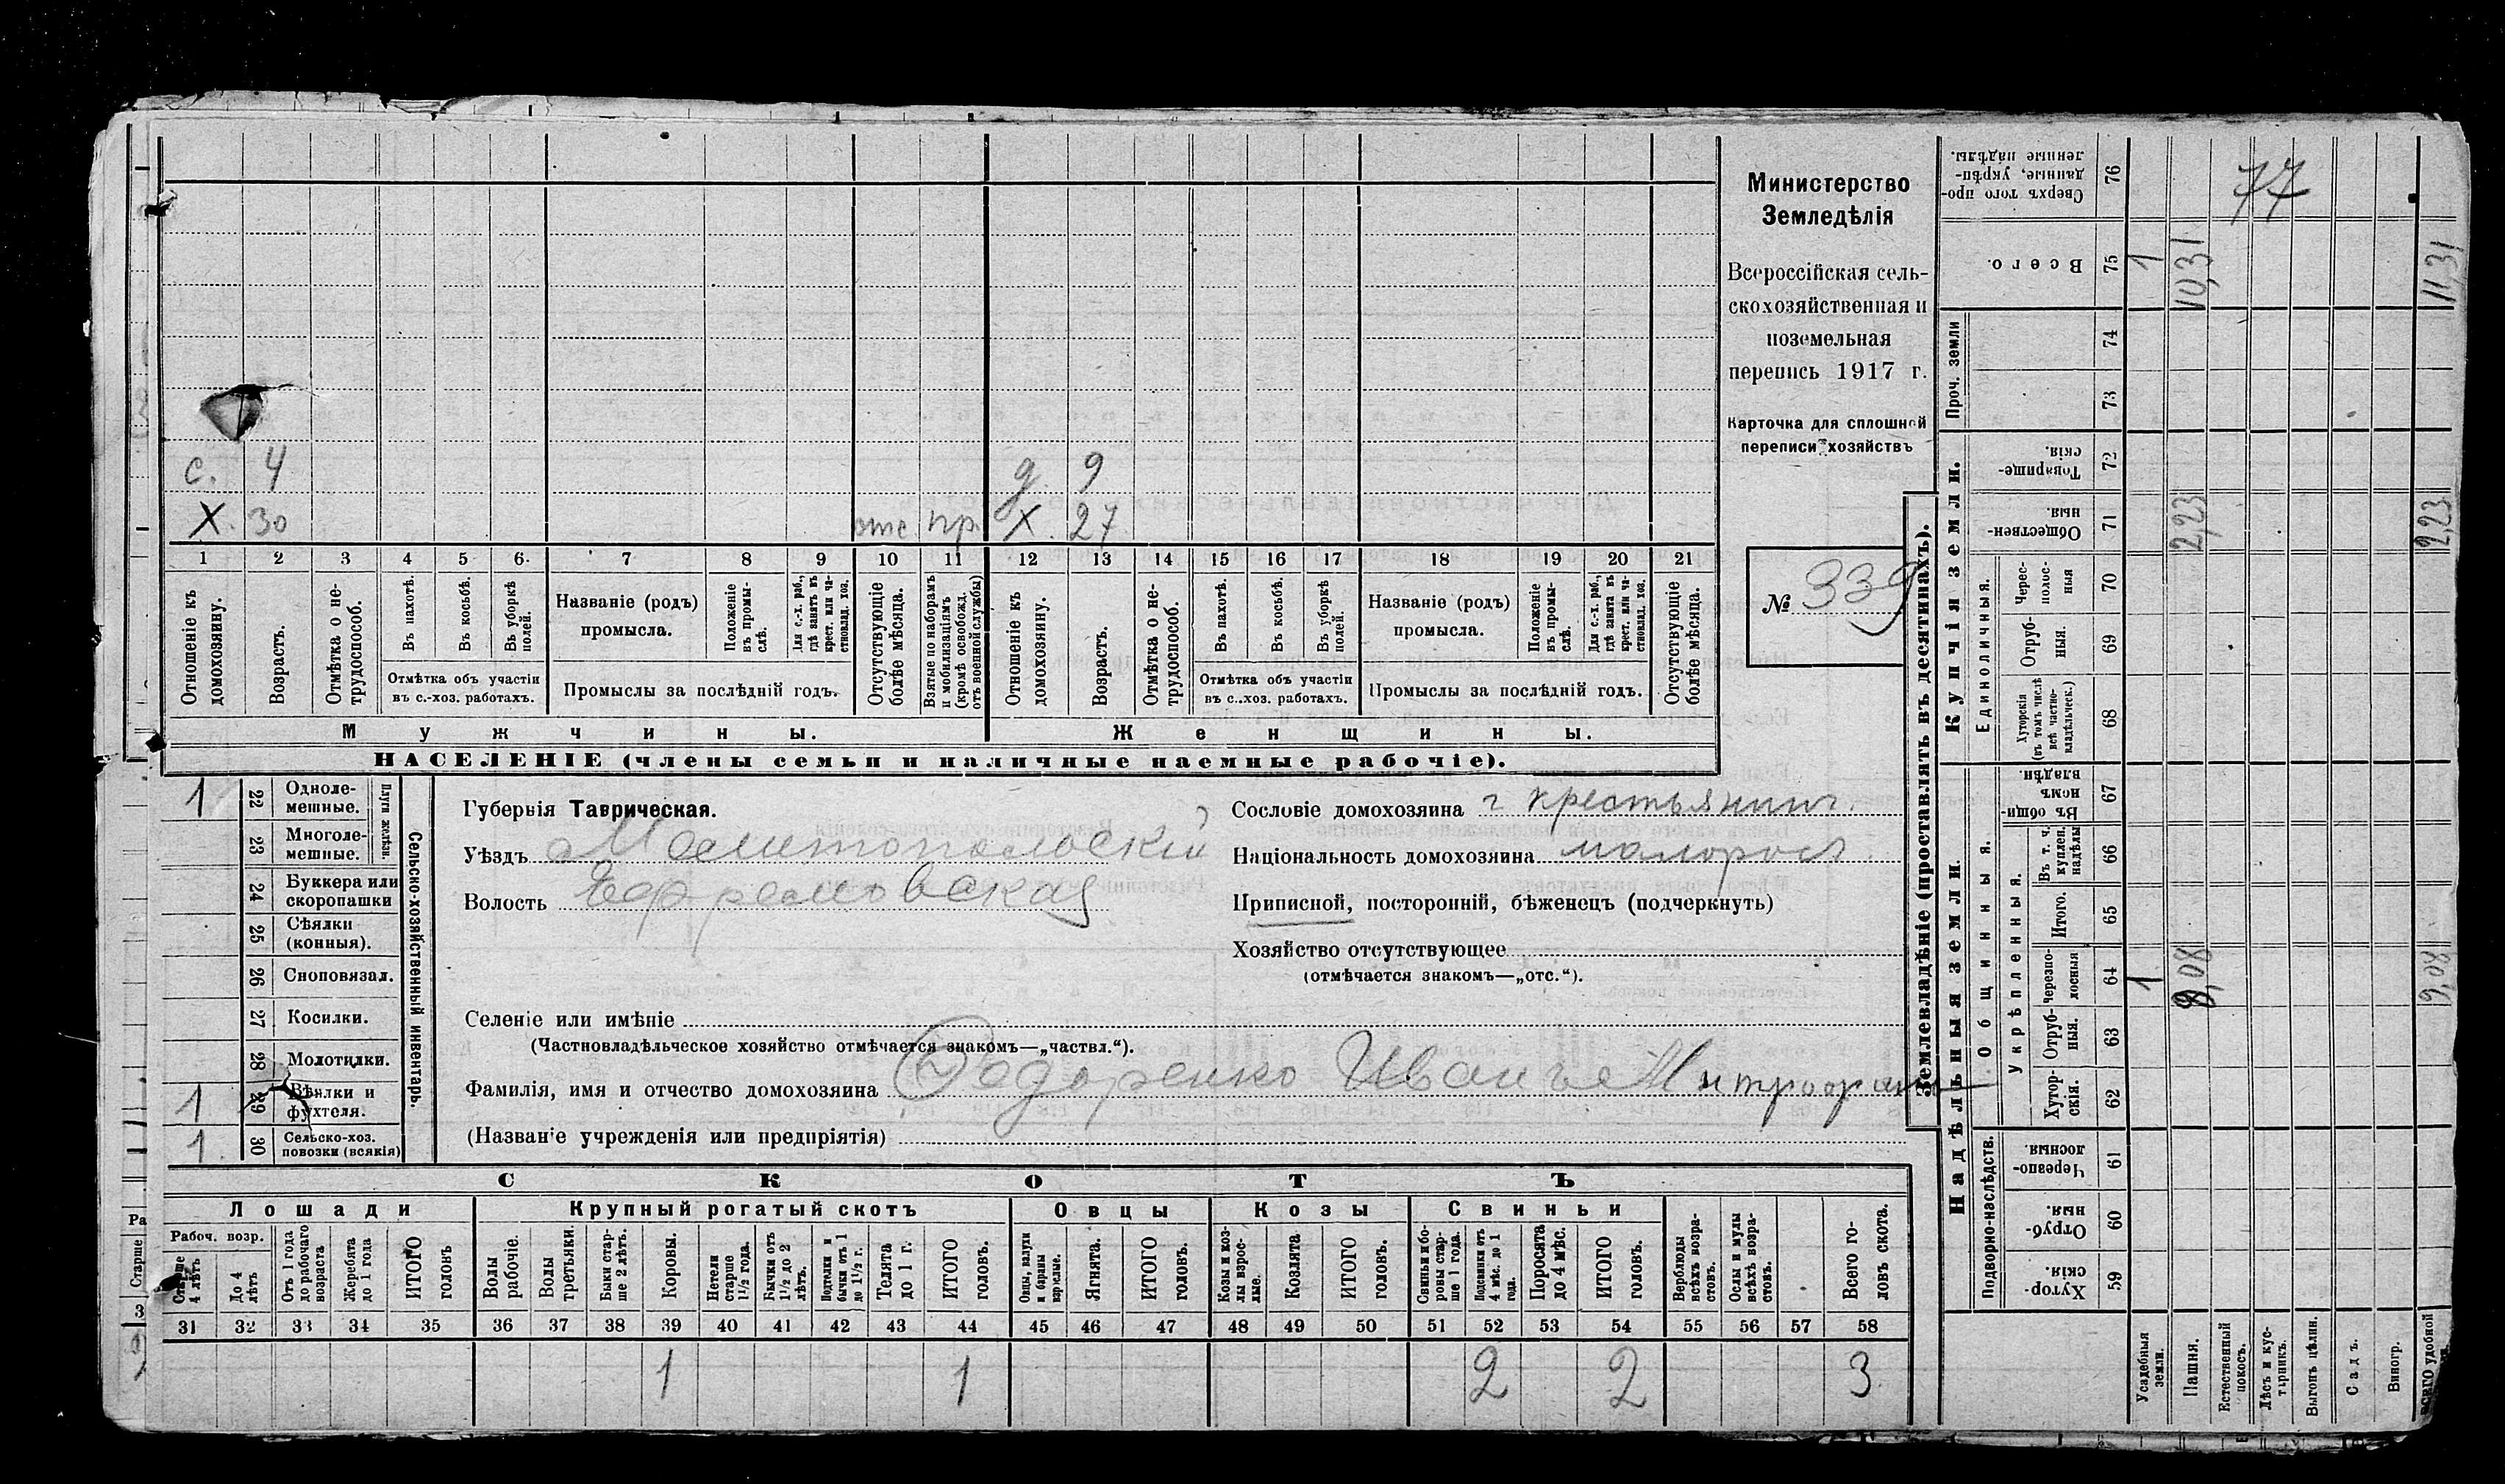 Министерство
Земледѣлія
Всероссійская сель-
скохозяйственная и
поземельная
перепись 1917 г.
Карточка для сплошной
переписи хозяйствъ
№ 339
с. 4 д. 9
Х. 30 отс пр. Х. 27
1 2 3 4 5 6. 7 8 9 10 11 12 13 14 15 16 17 18 19 20 21
Отношеніе къ домохозяину.
Возрастъ.
Отмѣтка о не-трудоспособ.
Въ пахотѣ.
Въ косьбѣ.
Въ уборкѣ полей.
Отмѣтка объ участіи
въ с.-хоз. работахъ.
Названіе (родъ)
промысла.
Положеніе въ промы-слѣ.
Для с.-х. раб., гдѣ занятъ въ крест. или ча-стновлад. хоз.
Промыслы за послѣдній годъ.
Отсутствующіе болѣе мѣсяца.
Взятые по наборамъ и мобилизаціямъ (кромѣ освобожд. отъ военной службы)
Отношеніе къ домохозяину.
Возрастъ.
Отмѣтка о не-трудоспособ.
Въ пахотѣ.
Въ косьбѣ.
Въ уборкѣ полей.
Отмѣтка объ участіи
въ с..хоз. работахъ.
Названіе (родъ)
промысла.
Положеніе въ промы-слѣ.
Для с.-х. раб., гдѣ занята въ крест. или ча-стновлад. хоз.
Промыслы за послѣдній годъ.
Отсутствующіе болѣе мѣсяца.
Мужчины. Женщины.
НАСЕЛЕНІЕ (члены семьи и наличные наемные рабочіе).
1 22 Одноле-мешные.
23 Многоле-мешные.
Плуги желѣзн.
24 Буккера или скоропашки
25 Сѣялки (конныя).
26 Сноповязал.
27 Косилки.
28 Молотилки.
1 29 Вѣялки и фухтеля.
1. 30 Сельско-хоз. повозки (всякія)
Сельско-хозяйственный инвентарь.
Губернія Таврическая.
Уѣздъ Мелитопольскій
Волость Ефремовская
Селеніе или имѣніе
(Частновладѣльческое хозяйство отмѣчается знакомъ—„частвл.“).
Фамилія, имя и отчество домохозяина Федоренко Иванъ Митрофан
(Названіе учрежденія или предпріятія)
Сословіе домохозяина крестьянинъ.
Національность домохозяина малоросъ.
Приписной, посторонній, бѣженецъ (подчеркнуть)
Хозяйство отсутствующее
(отмѣчается знакомъ—„отс.“).
СКОТЪ
Лошади Крупный рогатый скотъ Овцы Козы Свиньи
Рабоч. возр.
Старше 4 лѣтъ
До 4 лѣтъ
Отъ 1 года до рабочаго возраста
Жеребята до 1 года
ИТОГО головъ
Волы рабочіе.
Волы третьяки.
Быки стар-ше 2 лѣтъ.
Коровы.
Нетели старше 1½ года.
Бычки отъ 1½ до 2 лѣтъ.
Подтелки и бычки отъ 1 до 1½ г.
Телята до 1 г.
ИТОГО головъ.
Овцы, валухи и бараны взрослые.
Ягнята.
ИТОГО головъ.
Козы и коз-лы взрос-лые.
Козлята
ИТОГО головъ.
Свиньи и бо-ровы стар-ше 1 года.
Подсвинки отъ 4 мѣс. до 1 года.
Поросята до 4 мѣс.
ИТОГО головъ.
Верблюды всѣхъ возра-стовъ.
Ослы и мулы всѣхъ возра-стовъ.
Всего го-ловъ скота.
31 32 33 34 35 36 37 38 39 40 41 42 43 44 45 46 47 48 49 50 51 52 53 54 55 56 57 58
1 1 2 2 3
Землевладѣніе (проставлять въ десятинахъ).
Надѣльныя земли.
Купчія земли.
Проч. земли
Подворно-наслѣдств.
Общинныя.
Укрѣпленныя.
Единоличныя.
Сверхъ того про-данные, укрѣп-ленные надѣлы. 76 77
Всего. 75 1 10,31 11,31
74
73
Товарище-скія. 72
Обществен-ныя. 71 2,23 2,23
Черес-полос-ныя 70
Отруб-ныя. 69
Хуторскія (въ томъ числѣ всѣ частно-владѣльческ.) 68
Въ общин-номъ владѣн. 67
Въ т. ч. куплен. надѣлы 66
Итого. 65
Черезпо-лосныя 64 1 8,08 9,08
Отруб-ныя. 63
Хутор-скія. 62
Черезпо-лосныя 61
Отруб-ныя. 60
Хутор-скія. 59
Усадебныя земли.
Пашня.
Естественный покосъ.
Лѣсъ и кус-тарникъ.
Выгонъ цѣлин.
Садъ.
Виногр.
ВСЕГО удобной
Ра
Старше
3